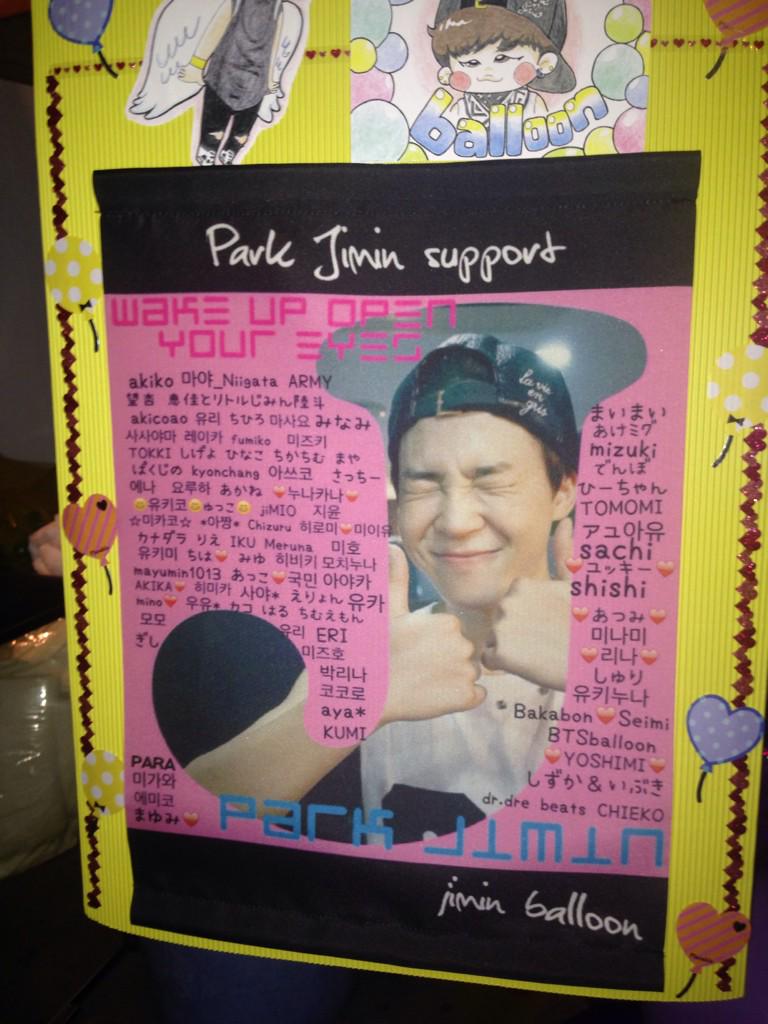 balloon
Park Jimin support
WAKE UP OPEN
YOUR EYES
la vie
en
gris
akiko 마야_Niigata ARMY
恵佳とリトルじみん陸斗
akicoao 유리 ちひろ 마사요 みなみ
사사야마 레이카 fumiko 미즈키
TOKKI しげよ ひなこ ちかちむ まや
ぱくじの kyonchang 아쓰코 さっちー
에나 요루하 あかね ❤누나카나❤
😊유키코😊ゅっこ😊 jiMIO 지윤
☆미카코☆ *아짱* Chizuru 히로미❤미이유
カナダラ りえ IKU Meruna 미호
유키미 ちは❤ みゆ 히비키 모치누나
mayumin1013 あっこ❤국민 아야카
AKIKA❤ 히미카 사야* えりょん 유카
mino❤ 우유* カコ はる ちむえもん
모모 유리 ERI
ぎし 미즈호
박리나
코코로
aya*
KUMI
PARA
미가와
에미코
まゆみ❤
まいまい
あけミグ
mizuki
でんぼ
ひーちゃん
TOMOMI
アユ아유
sachi
❤ユッキー❤
shishi
❤あつみ❤
미나미
❤리나❤
しゅり
유키누나
Bakabon❤Seimi
BTSballoon
❤YOSHIMI❤
しずか&いぶき
dr.dre beats CHIEKO
PARK JIMIN
jimin balloon